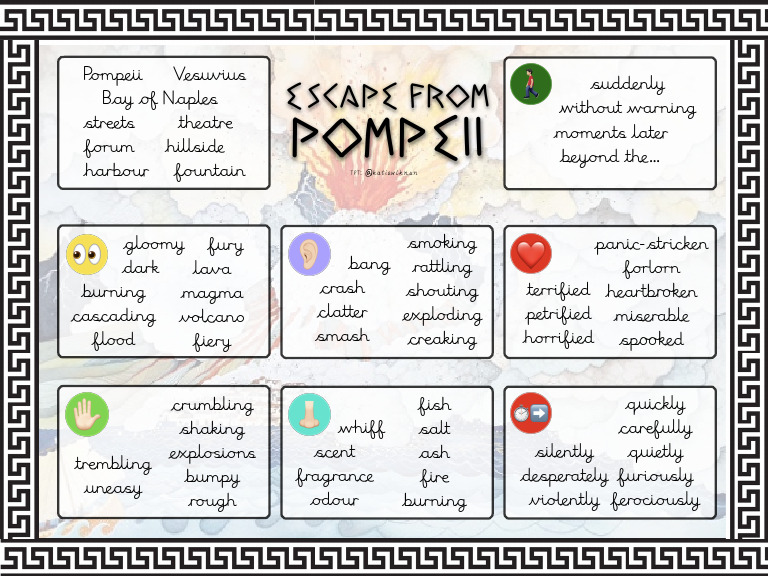 Pompeii Vesuvius
Bay of Naples
streets theatre
forum hillside
harbour fountain
ESCAPE FROM
POMPEII
TPT: @katiewikman
suddenly
without warning
moments later
beyond the...
gloomy fury
dark lava
burning magma
cascading volcano
flood fiery
smoking
bang rattling
crash shouting
clatter exploding
smash creaking
panic-stricken
forlorn
terrified heartbroken
petrified miserable
horrified spooked
crumbling
shaking
explosions
trembling bumpy
uneasy rough
fish
whiff salt
scent ash
fragrance fire
odour burning
quickly
carefully
silently quietly
desperately furiously
violently ferociously